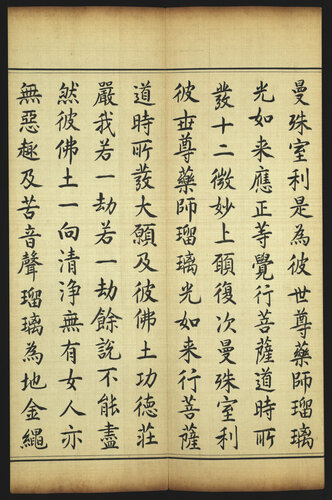 曼殊室利是為彼世尊藥師瑠璃
光如来應正等覺行菩薩道時所
發十二微妙上願復次曼殊室利
彼世尊藥師瑠璃光如来行菩薩
道時所發大願及彼佛土功德莊
嚴我若一劫若一劫餘說不能盡
然彼佛土一向清浄無有女人亦
無惡趣及苦音聲瑠璃為地金繩